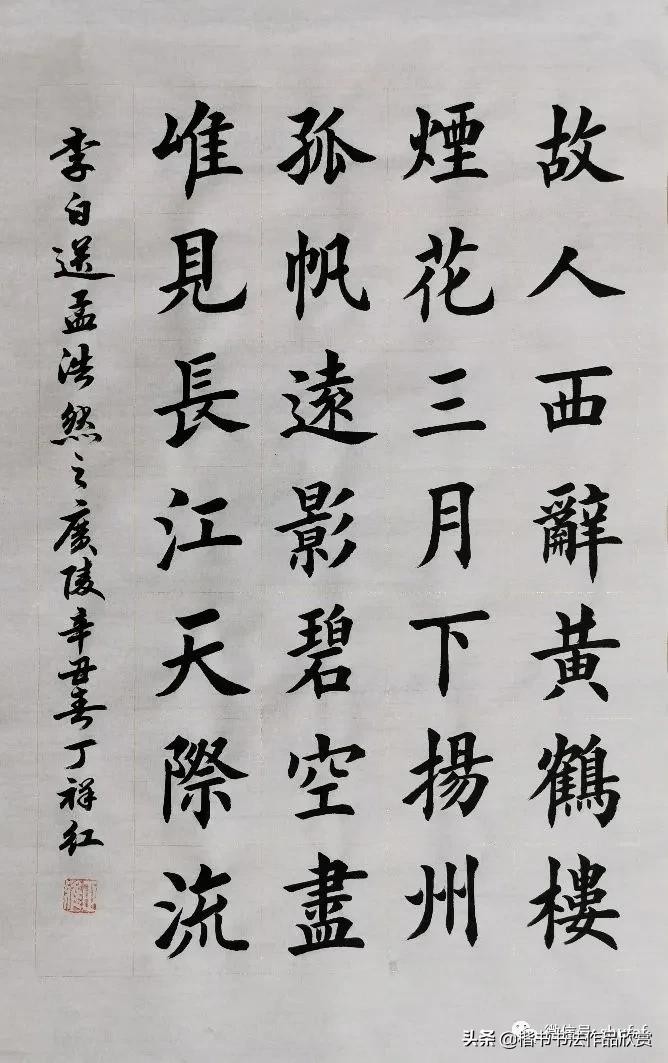 故人西辭黃鶴樓
煙花三月下揚州
孤帆遠影碧空盡
唯見長江天際流
李白送孟浩然之廣陵辛丑春丁祥红
头条 @楷书书法作品欣赏